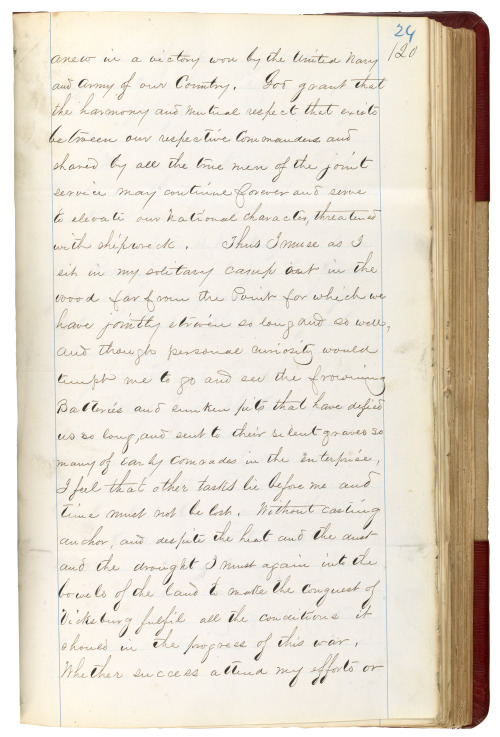 24
120
anew in a victory won by the United Navy
and Army of our Country. God grant that
the harmony and mutual respect that exists
between our respective Commanders and
shared by all the true men of the joint
service may continue forever and serve
to elevate our National character, threatened
with shipwreck. Thus I muse as I
sit in my solitary camp out in the
wood far from the Point for which we
have jointly striven so long and so well,
and though personal curiosity would
tempt me to go and see the frowning
Batteries and sunken pits that have defied
us so long, and sent to their silent graves so
many of our by Comrades in the Enterprise,
I feel that other tasks lie before me and
time must not be lost. Without casting
anchor, and despite the heat and the dust
and the drought I must again into the
bowels of the land to make the Conquest of
Vicksburg fulfil all the conditions it
should in the progress of this war.
Whether success attend my efforts or